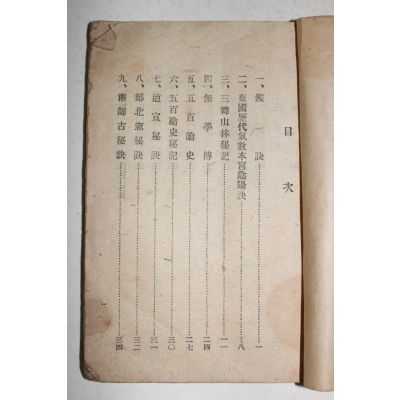 目次
一、鑑訣……一
二、東國歷代氣數本宮陰陽訣……八
三、三韓山林秘記……一一
四、無學傳……二四
五、五百論史……二七
六、五百論史秘記……三〇
七、道宣秘訣……三一
八、鄭北窓秘訣……三二
九、南師古秘訣……三四